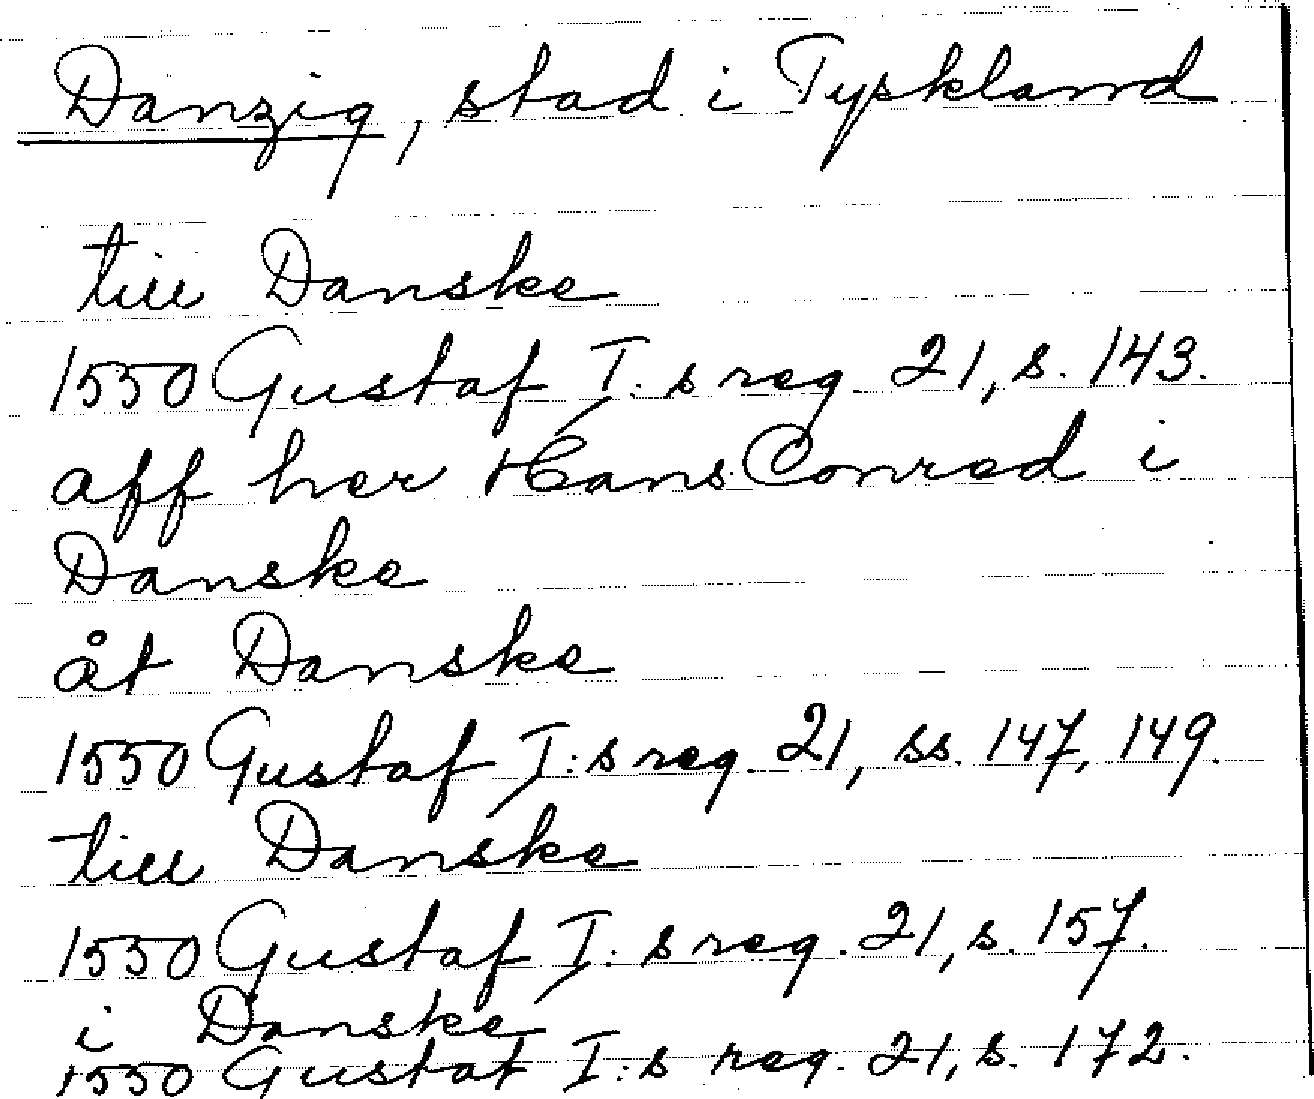 Danzig, stad i Tyskland
till Danske
1550 Gustaf I:s reg. 21, s. 143.
aff her Hans Conrad i
Danske
åt Danske
1550 Gustaf I:s reg. 21, ss. 147, 149.
till Danske
1550 Gustaf I:s reg. 21, s. 157.
i Danske
1550 Gustaf I:s reg. 21, s. 172.